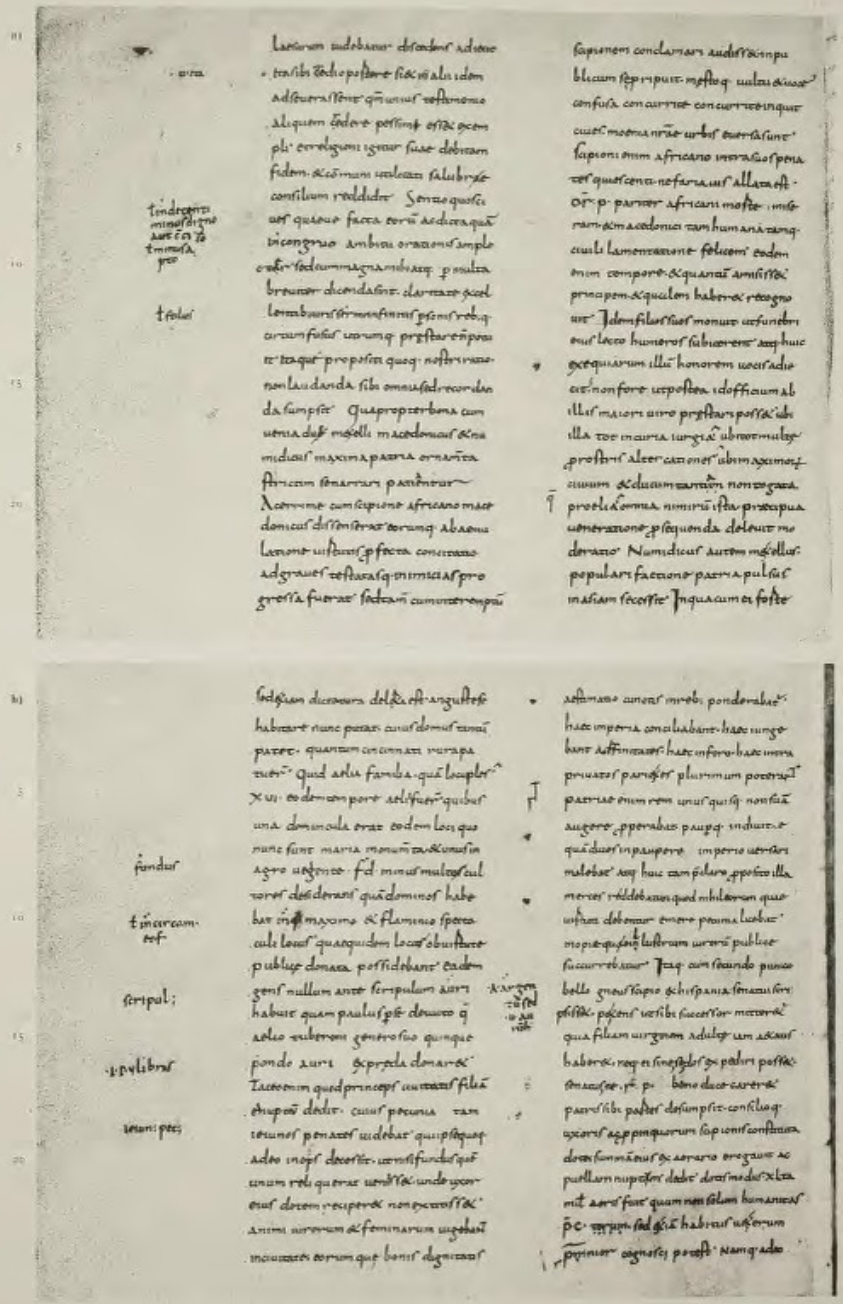 a)
laesurum uidebatur discedens
aliquem credere possint esset exem
pli et religioni igitur suae debitam
fidem & cōmuni utilitati salubre
consilium reddidit Sentio quos ci
ues quaeue facta eorū ac dicta quā
congruo ambitu orationis ample
sed cum magna mihi atq; multa
breuiter dicenda sint claritate excel
circumfusus utrumq; prestare
itaque propositi quoq; nostri ratio
non laudanda sibi omnia sed recordan
da sumpsit Quapropter bona cum
uenia duo metelli macedonicus & nu
midicus maxima patriae ornamta
strictim se narrari patientur
Acerrime cum scipione africano mace
donicus dissenserat eorumq; ab aemu
latione uirtutis pfecta concitatio
ad graues testatasq; inimicitias pro
gressa fuerat sed tam cum interemptū
scipionem conclamari audisset in pu
blicum se pripuit mestoq; uultu & uoce
confusa concurrite concurrite inquit
ciues moenia nrae urbis euersa sunt
scipioni enim africano intra suos pena
tes quiescenti nefaria uis allata est
pariter africani morte mise
ram & macedonici tam humana tamq;
ciuili lamentatione felicem eodem
enim tempore & quantū amisisset
principem & qualem haberet recogno
uit Idem filios suos monuit ut funebri
eius lecto humeros subicerent atq; huic
exequiarum illū honorem uocis adie
cit non fore ut postea id officium ab
illis maiori uiro prestari posset ubi
illa tot in curia iurgia ubi tot multe
p rostris altercationes ubi maximorū
ciuium & ducum non togata
proelia omnia nimirū ista praecipua
ueneratione psequenda deleuit mo
deratio Numidicus autem metellus
populari factione patria pulsus
in asiam secessit In qua cum ei forte
b)
sed etiam dictatura delata est anguste se
habitare nunc putat cuius domus tantū
patet quantum cincinnati rura pa
tuer Quid aelia familia quā locuples
XVI eodem tempore aelii fuer quibus
una domuncula erat eodem loci quo
nunc sunt maria monumta & unus in
agro uegente fd minus multos cul
tores desiderans quā dominos habe
bat maximo & flaminio specta
culi locus quae quidem loca ob uirtute
publice donata possidebant Eadem
gens nullum ante scripulum auri
habuit quam paulus pse deuicto
aelio tuberoni genero suo quinque
pondo auri ex preda donaret
Taceo enim quod princeps ciuitatis filiā
ei nuptū dedit cuius pecunia tam
ieiunos penates uidebat qui ipse quoq;
adeo inops decessit ut nisi fundus quē
unum reliquerat uenisset unde uxor
eius dotem reciperet non extitisset
animi uirorum & feminarum uigebant
in ciuitate eorumque bonis dignitatis
aestimatio cunctis in rebus ponderabat
haec imperia conciliabant haec iunge
bant adfinitates haec in foro haec intra
priuatos parietes plurimum poterant
patriae enim rem unus quisq; non suā
augere pperabat pauperq; in diuite
quā diues in paupere imperio uersari
malebat atq; huic tam pclaro pposito illa
merces reddebatur quod nihil eorum que
uirtuti debentur emere pecunia licebat
inopieq; inlustrum uirorū publice
succurrebatur Itaq; cum secundo punico
bello gneus scipio ex hispania senatui scri
psisset petens ut sibi successor mitteret
quia filiam uirginem adultae iam aetatis
haberet neq; ei sine se dos expediri posset
senatus ne r p bono duce careret
patris sibi partes desumpsit consilioq;
uxoris ac ppinquorum scipionis constituta
dote summā eius ex aerario erogauit ac
puellam nuptum dedit dotis modus XL ta
mil aeris fuit quum non solum humanitas
p c sed etiā habitus ueterum
cognosci potest Namq; adeo
fundus
scripul;